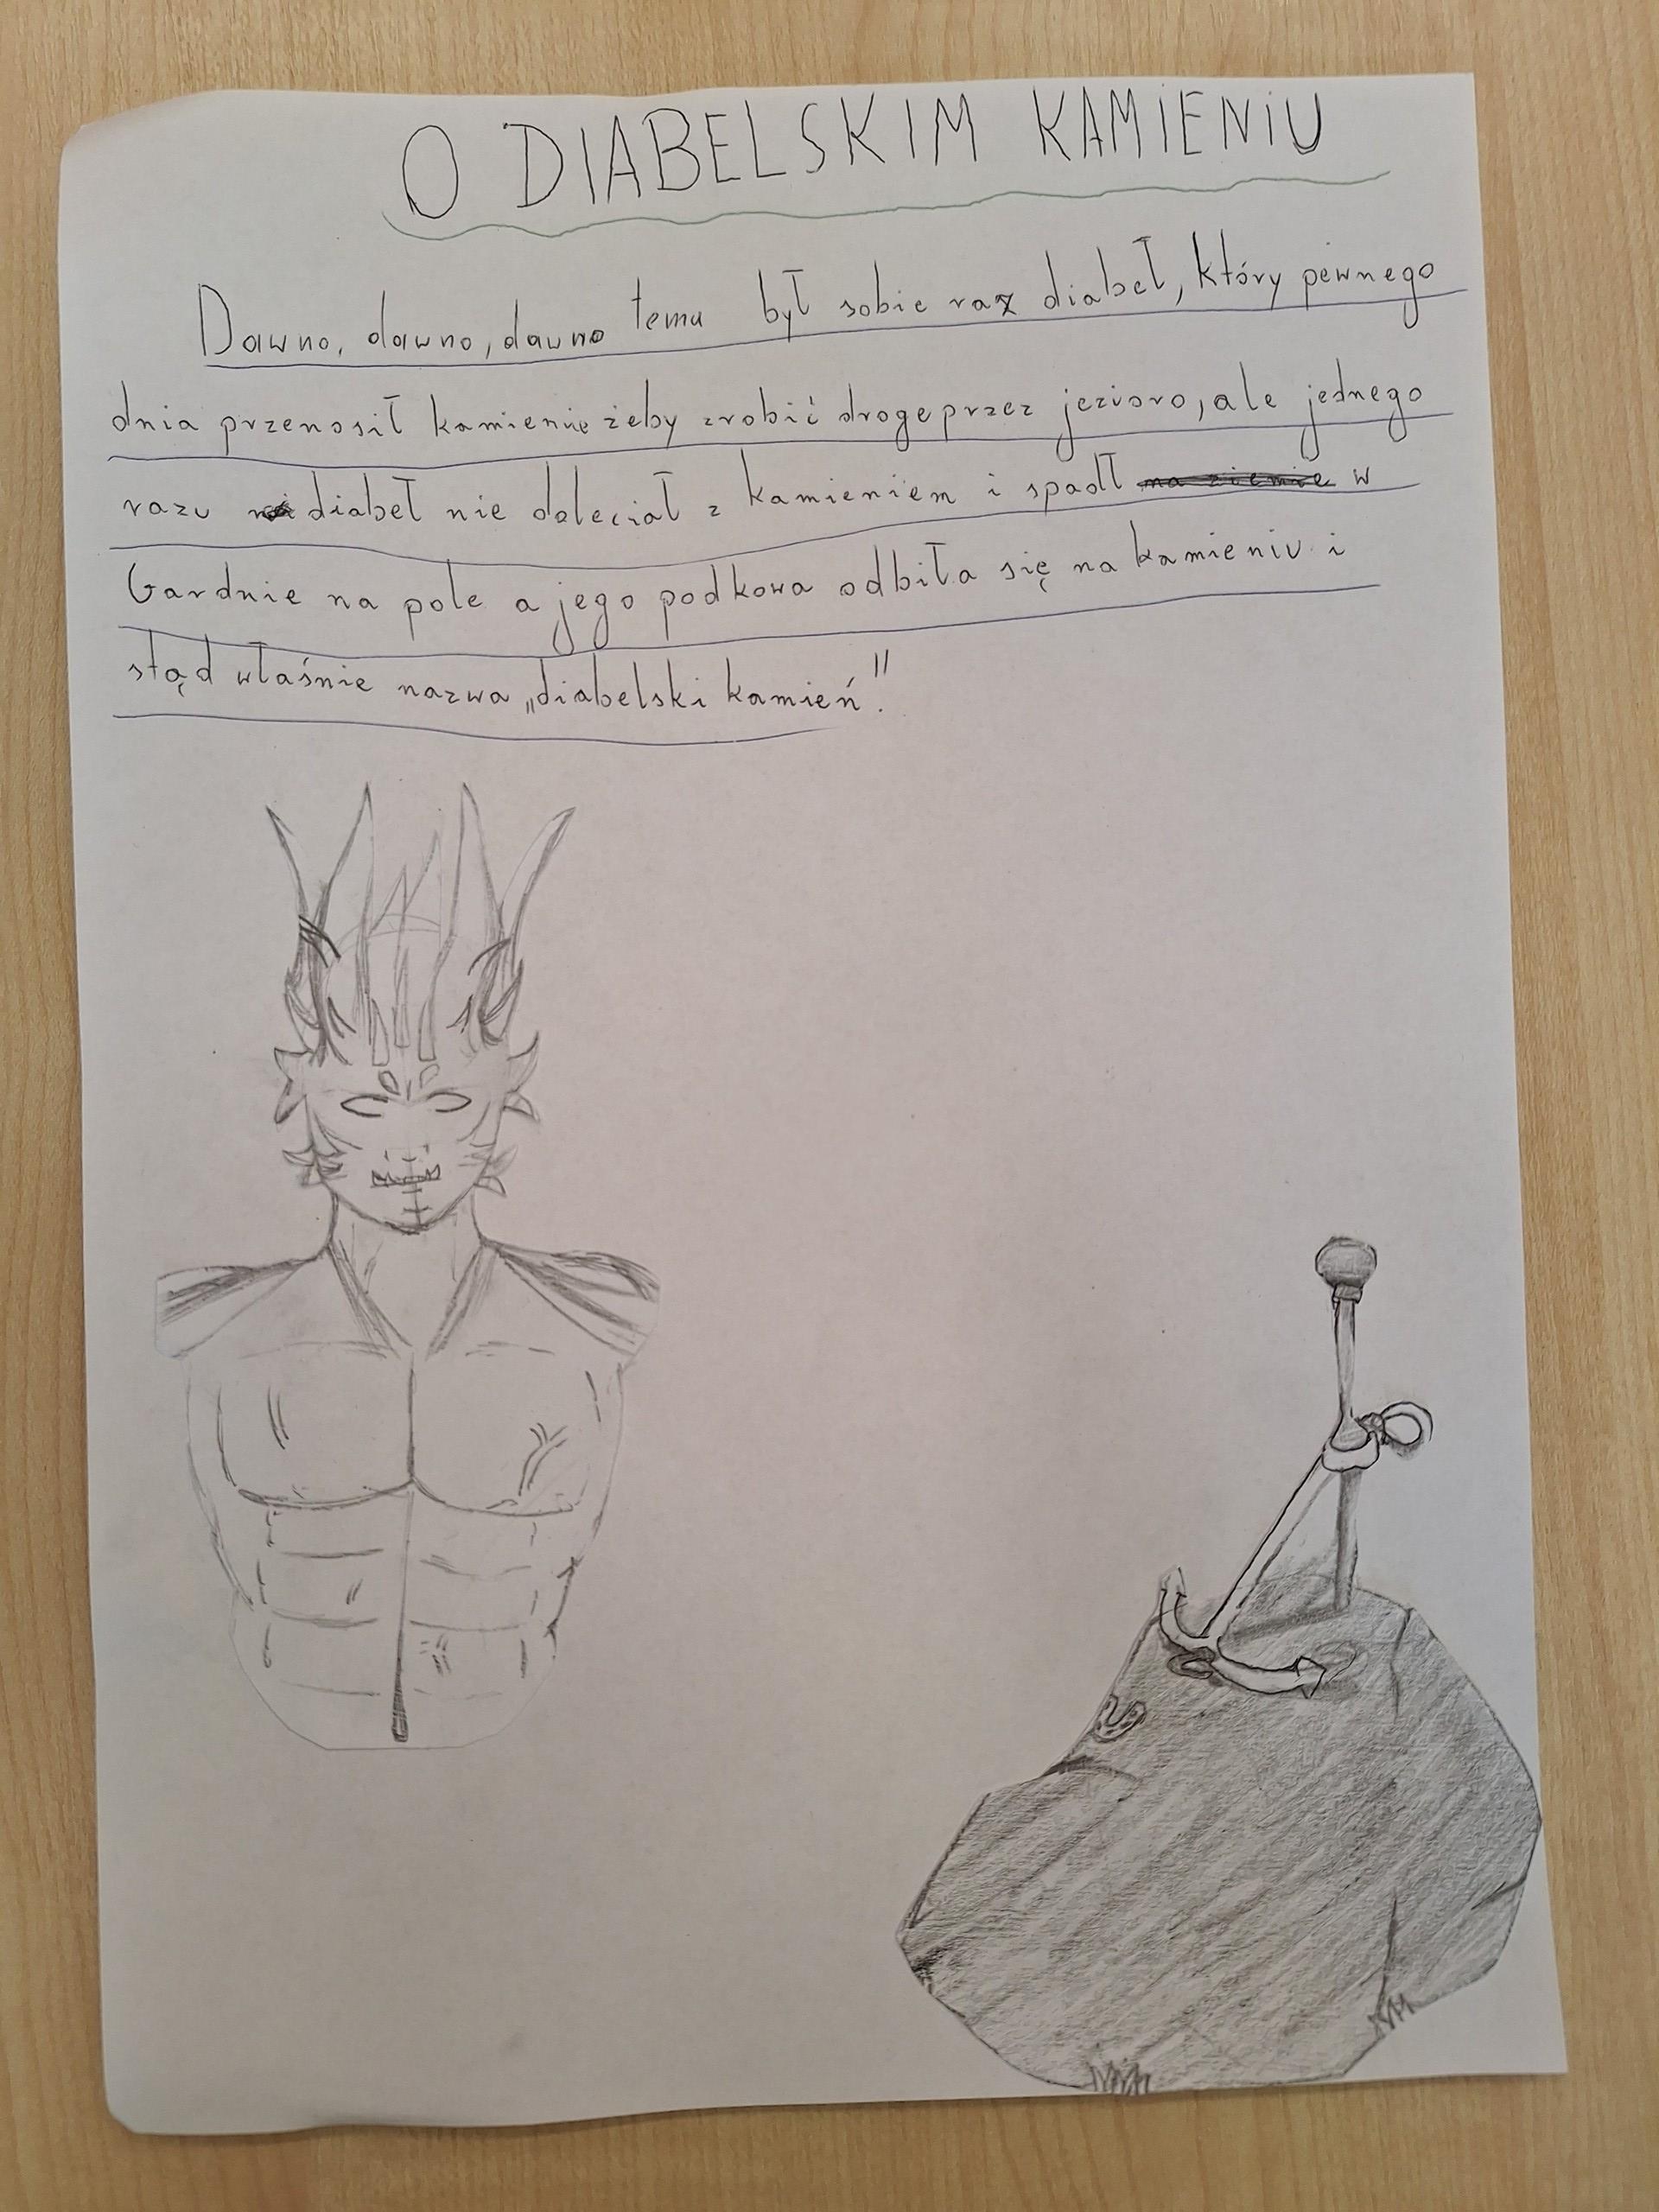 O DIABELSKIM KAMIENIU
Dawno, dawno, dawno temu był sobie raz diabeł, który pewnego
dnia przenosił kamienie żeby zrobić droge przez jezioro, ale jednego
razu diabeł nie doleciał z kamieniem i spadł na ziemie w
Gardnie na pole a jego podkowa odbiła się na kamieniu i
stąd właśnie nazwa „diabelski kamień."